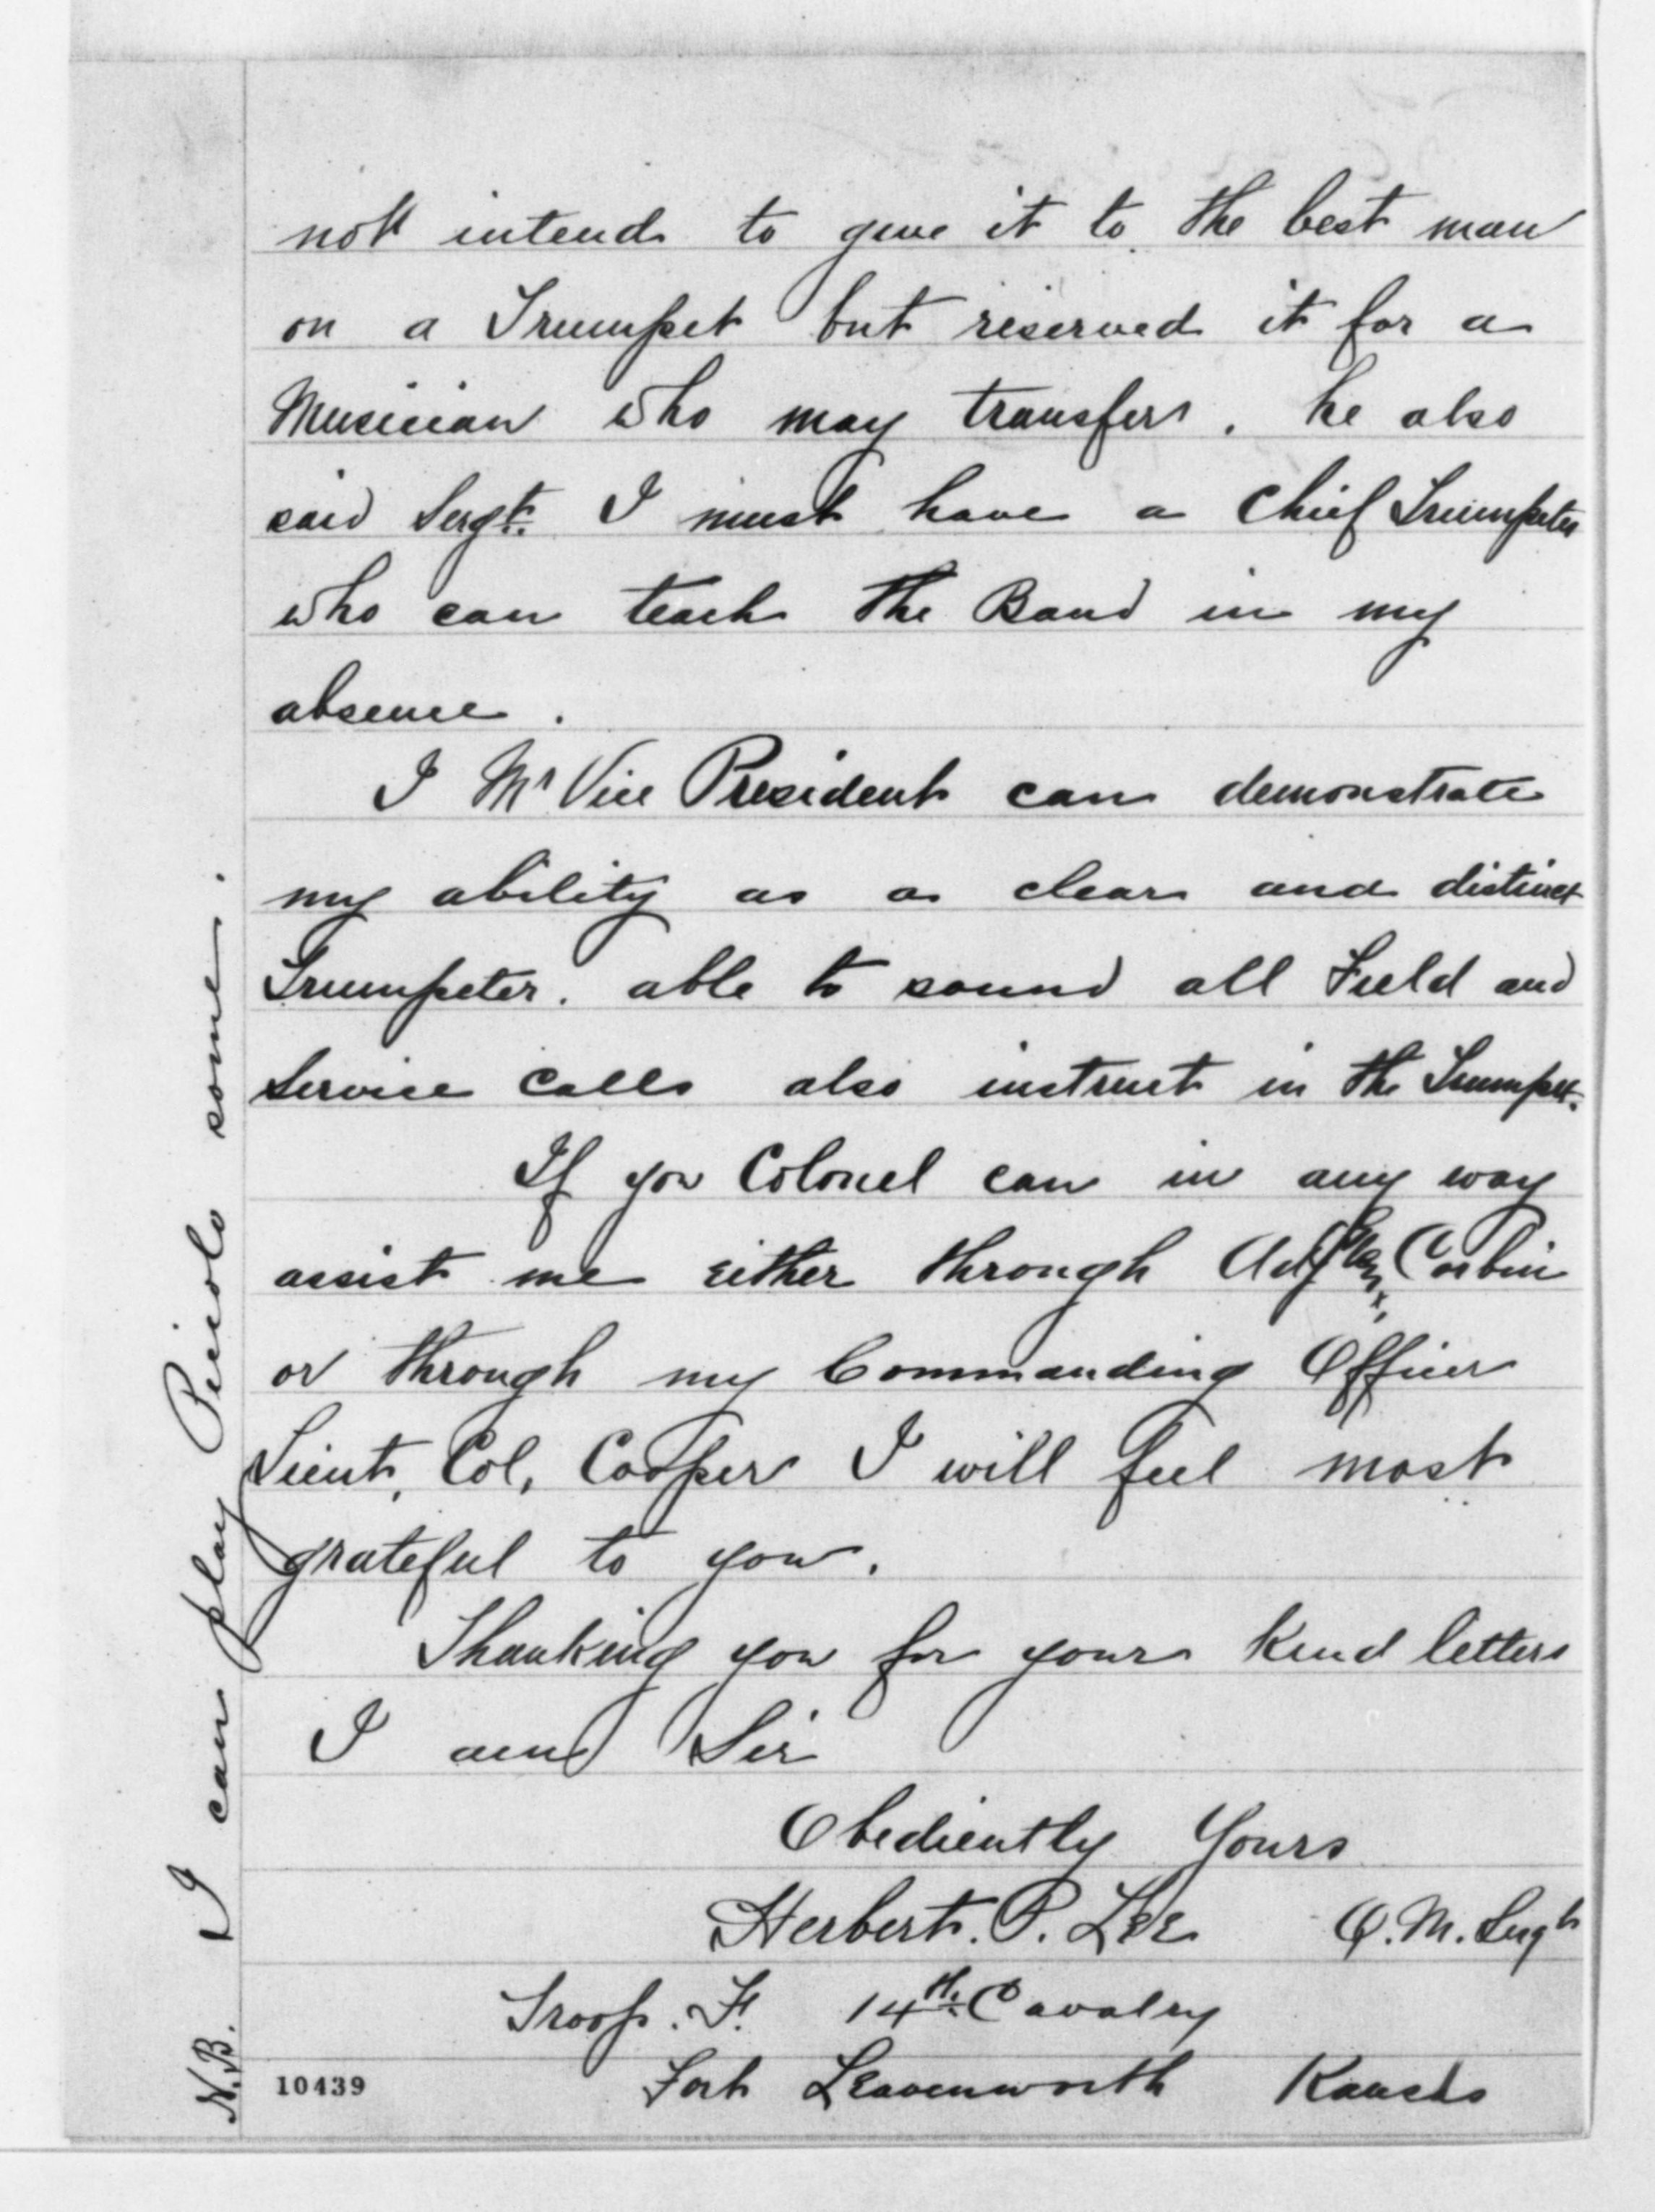 not intend to give it to the best man
on a Trumpet but reserved it for a
Musician who may transfer. he also
said Sergt. I must have a Chief Trumpeter
who can teach the Band in my
absence.
I Mr Vice President can demonstrate
my ability as a clear and distinct
Trumpeter. able to sound all Field and
Service Calls also instruct in the Trumpet.
If you Colonel can in any way
assist me either through Adj Gen, Corbin
or through my Commanding Officer
Lieut, Col, Cooper I will feel most
grateful to you.
Thanking you for your kind letters
I am Sir
Obediently Yours
Herbert. P. Lee Q.M. Sergt
Troop. F. 14th Cavalry
Fort Leavenworth Kansas
10439
N.B. I can play Piccolo some.